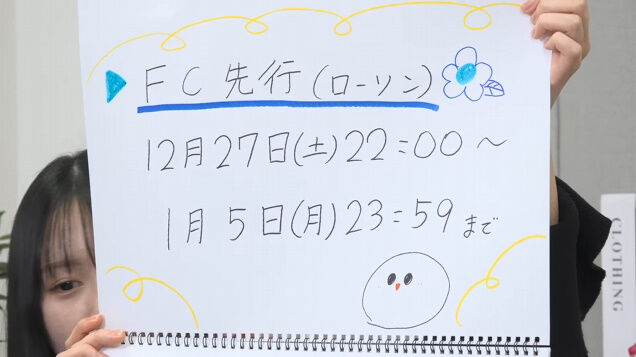 FC先行(ローソン)
12月27日(土)22:00〜
1月5日(月)23:59まで
CLOTHING